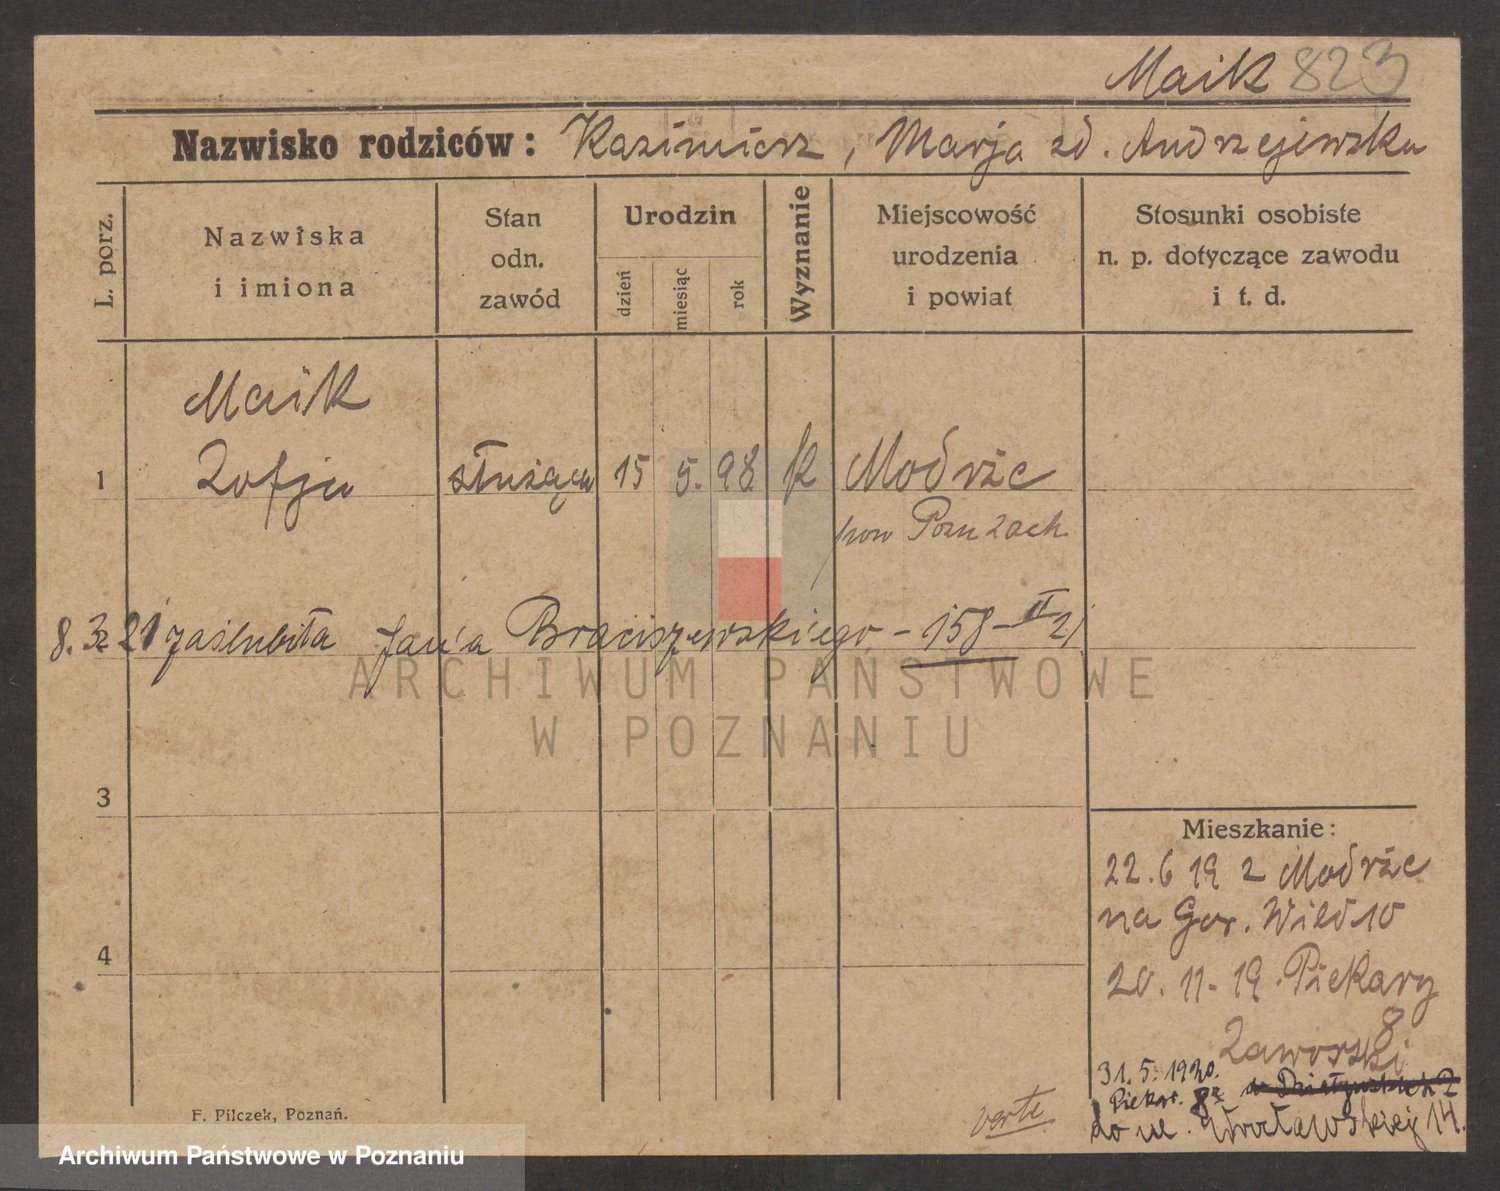 Maik 823
Nazwisko rodziców: Kazimierz, Marja zd. Andrzejewska
L. porz.
Nazwiska
i imiona
Stan
odn.
zawód
Urodzin
dzień
miesiąc
rok
Wyznanie
Miejscowość
urodzenia
i powiat
Stosunki osobiste
n. p. dotyczące zawodu
i t. d.
Maik
1 Zofja służąca 15 5. 98 k Modrże
pow Pozn Zach.
8. 3. 21 zaślubiła Jan'a Braciszewskiego - 158 - II 21
ARCHIWUM PAŃSTWOWE
W POZNANIU
3
4
Mieszkanie:
22.6 19 z Modrże
na Gor. Wild 10
20. 11. 19. Piekary
8
Zaworski
31. 5. 1920.
Piekar. 8 Działyńskich 2
do ul. Wrocławskiej 14.
verte
F. Pilczek, Poznań.
Archiwum Państwowe w Poznaniu